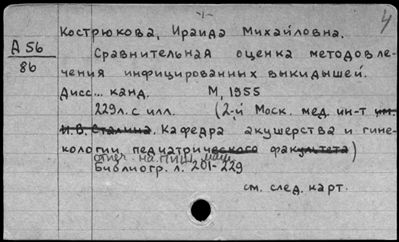 -1-
4
Кострюкова, Ираида Михайловна.
Д 56
86
Сравнительная оценка методов ле-
чения инфицированных выкидышей.
Дисс... канд. М, 1955
229л. с илл. (2-й Моск. мед. ин-т им.
И.В. Сталина. Кафедра акушерства и гине-
кологии педиатрического факультета)
отпеч. на пиш. маш.
Библиогр. л. 201-229
см. след. карт.